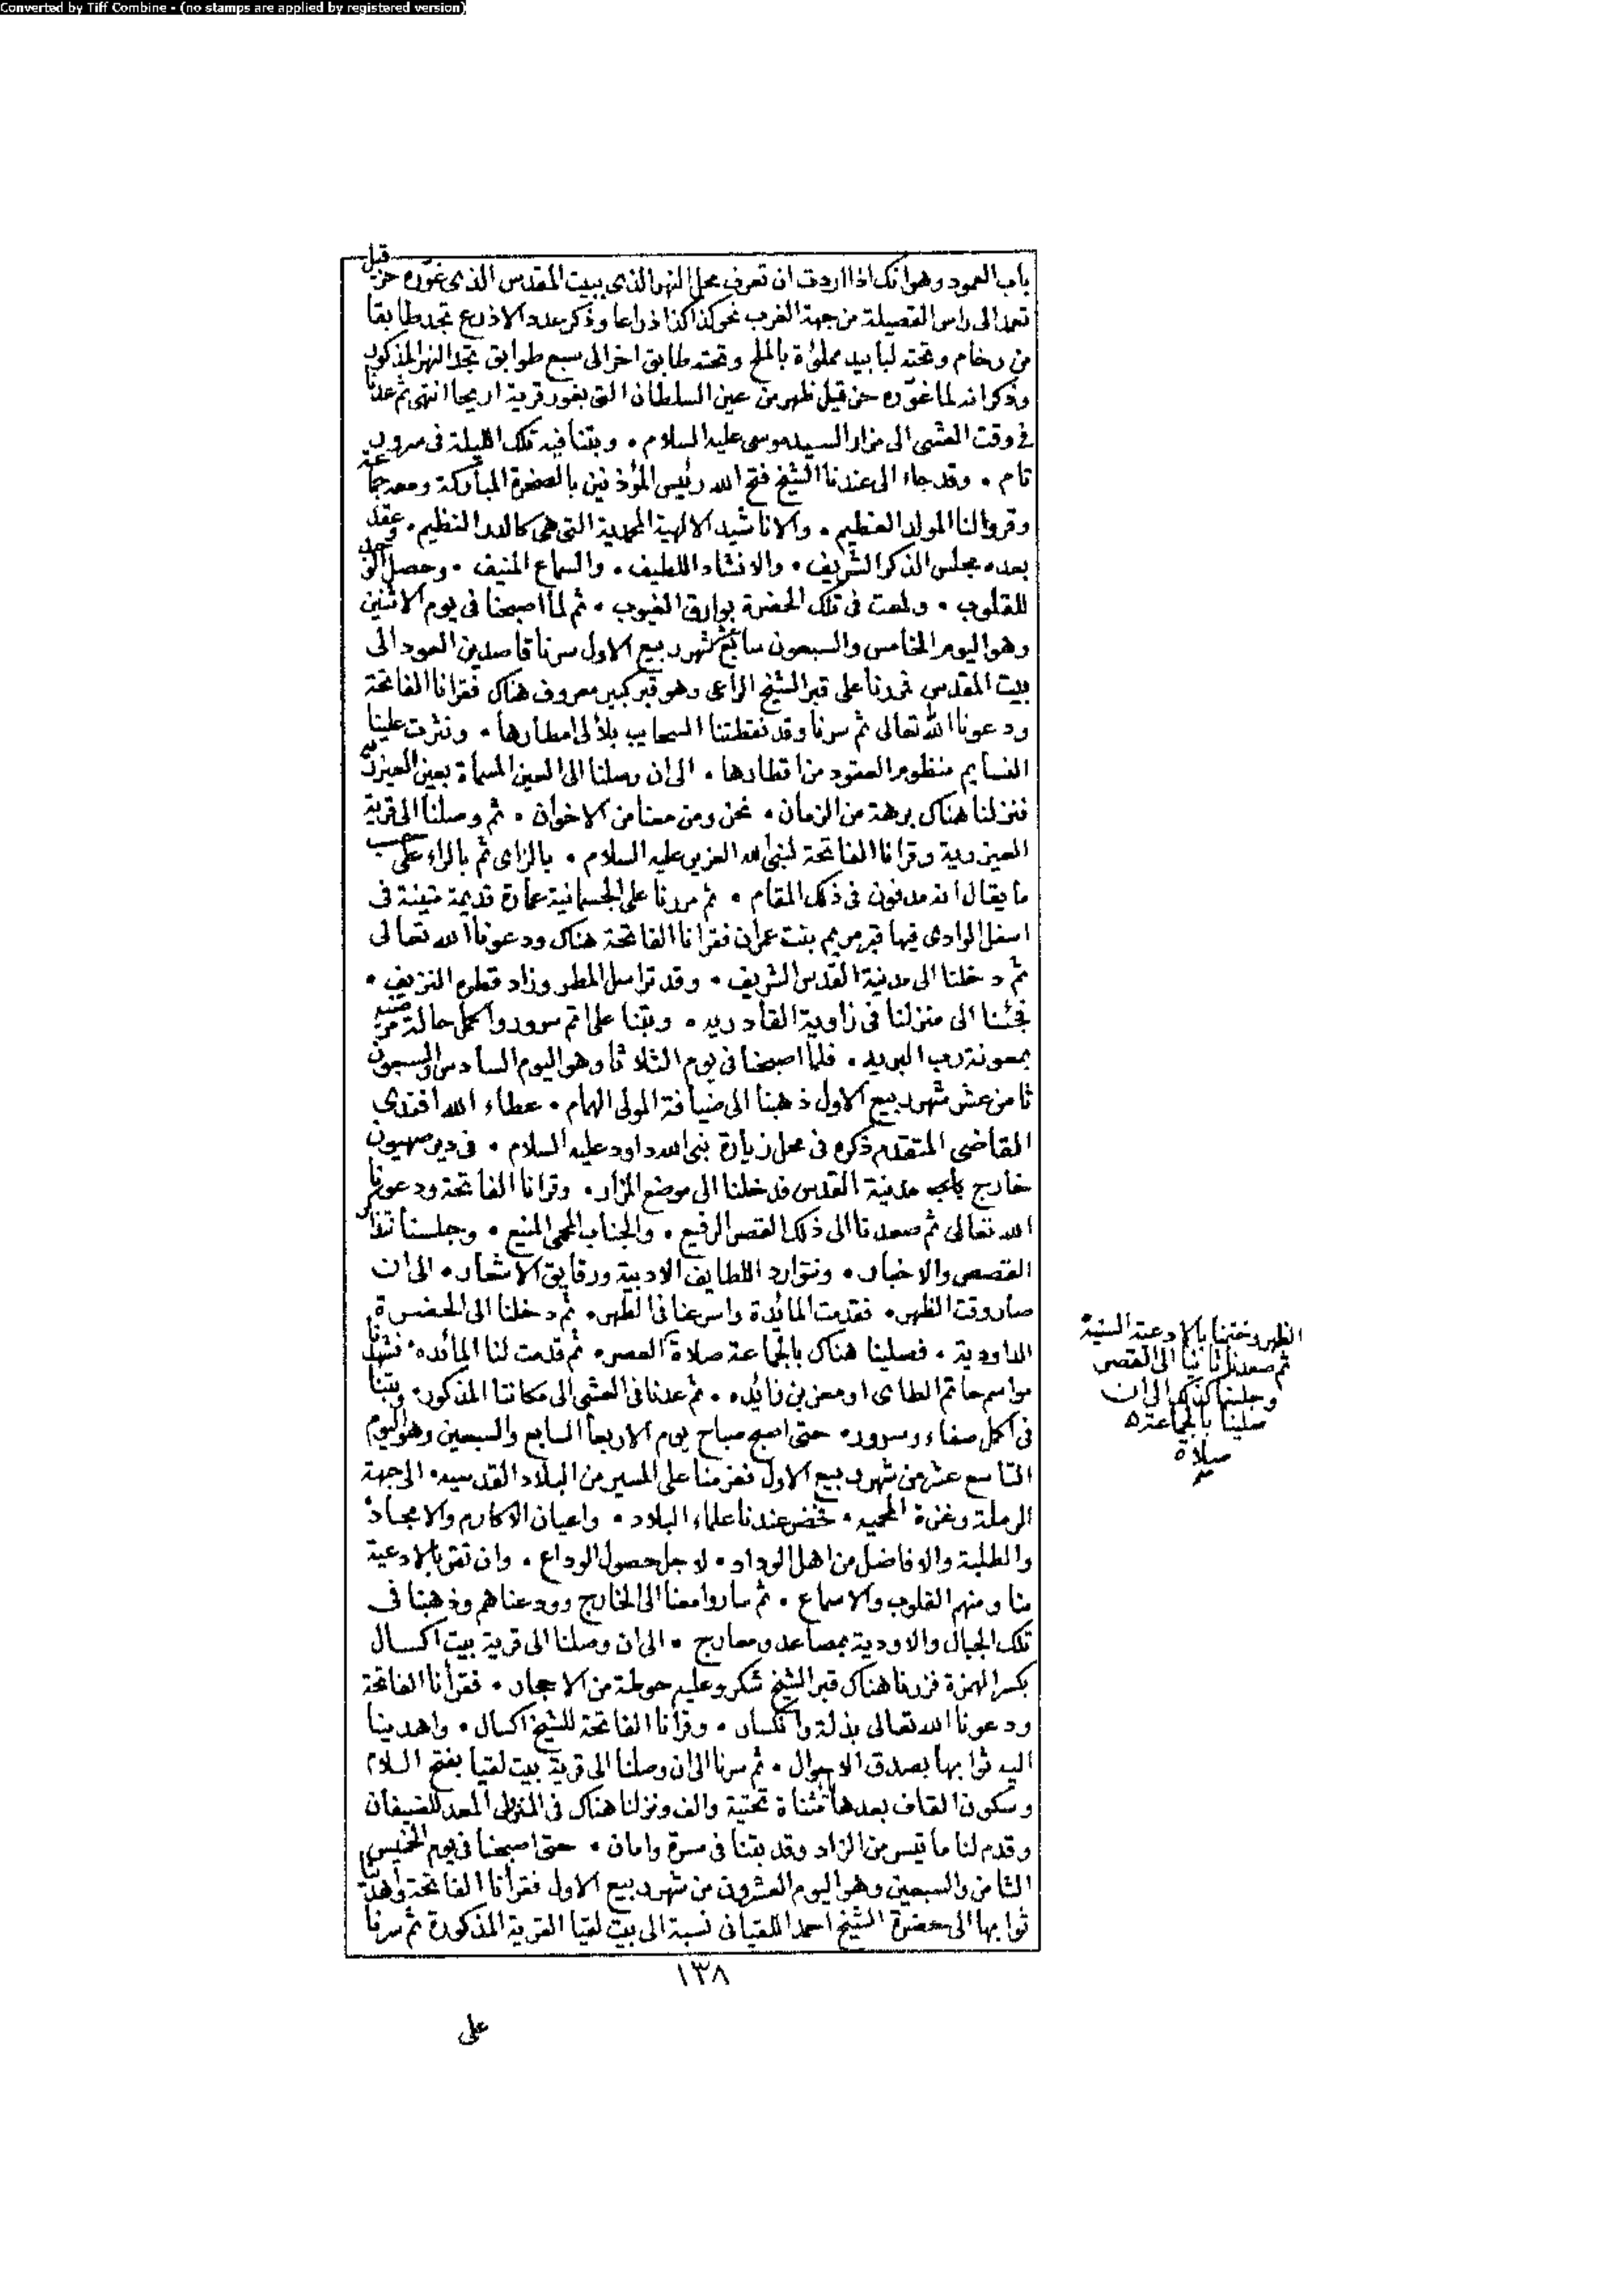 Converted by Tiff Combine - (no stamps are applied by registered version)
باب العمود وهو انك اذا اردت ان تعرف محل النهر الذى ببيت المقدس الذى غوره حز قيل
تعمد الى راس الفصيلة من جهة الغرب نحو كذا كذا ذراعا وذكر عدد الاذرع تجد طابقا
من رخام وتحته لبابيد مملؤة بالملح وتحته طابق اخر الى سبع طوابق تجد النهر المذكور
وذكر انه لما غوره حزقيل ظهر من عين السلطان التى بغور قرية اريحا انتهى ثم عدنا
فى وقت العشى الى مزار السيد موسى عليه السلام . وبتنا فيه تلك الليلة فى سرور
تام . وقد جاء الى عندنا الشيخ فتح الله رئيس المؤذنين بالصخرة المباركة ومعه جماعة
وقروا لنا المولد العظيم . والاناشيد الالهية المحمدية التى هى كالدر النظيم . وعقد
بعده مجلس الذكر الشريف . والانشاد اللطيف . والسماع المنيف . وحصل الوجد
للقلوب . ولمعت فى تلك الحضرة بوارق الغيوب . ثم لما اصبحنا فى يوم الاثنين
وهو اليوم الخامس والسبعون سابع عشر شهر ربيع الاول سرنا قاصدين العود الى
بيت المقدس فمررنا على قبر الشيخ الراعى وهو قبر كبير معروف هناك فقرانا الفاتحة
ودعونا الله تعالى ثم سرنا وقد نقطتنا السحايب بلألى امطارها . ونثرت علينا
النسايم منظوم العقود من اقطارها . الى ان وصلنا الى العين المسماة بعين العيزرية
فنزلنا هناك برهة من الزمان . نحن ومن معنا من الاخوان . ثم وصلنا الى قرية
العيزرية وقرانا الفاتحة لنبى الله العزير عليه السلام . بالزاى ثم بالراء على حسب
ما يقال انه مدفون فى ذلك المقام . ثم مررنا على الجسمانية عمارة قديمة متينة فى
اسفل الوادى فيها قبر مريم بنت عمران فقرانا الفاتحة هناك ودعونا الله تعالى
ثم دخلنا الى مدينة القدس الشريف . وقد تراسل المطر وزاد قطره النزيف .
فجئنا الى منزلنا فى زاوية القادريه . وبتنا على اتم سرور واكمل حالة مرضية
بمعونة رب البريه . فلما اصبحنا فى يوم الثلاثا وهو اليوم السادس والسبعون
ثامن عشر شهر ربيع الاول ذهبنا الى ضيافة المولى الهمام . عطاء الله افندى
القاضى المتقدم ذكره فى محل زيارة نبى الله داود عليه السلام . فى دير صهيون
خارج باب مدينة القدس فدخلنا الى موضع المزار . وقرانا الفاتحة ودعونا
الله تعالى ثم صعدنا الى ذلك القصر الرفيع . والجناب المحمى المنيع . وجلسنا نتذاكر
القصص والاخبار . ونتوارد اللطايف الادبية ورقايق الاشعار . الى ان
صار وقت الظهر . فقدمت المائدة واسرعنا فى الطهر . ثم دخلنا الى الحضرة
الداودية . فصلينا هناك بالجماعة صلاة العصر . ثم قدمت لنا المائده . فشهدنا
مواسم حاتم الطاى او معن بن زائده . ثم عدنا فى العشى الى مكاننا المذكور . وبتنا
فى اكمل صفاء وسرور . حتى اصبح صباح يوم الاربعا السابع والسبعين وهو اليوم
التاسع عشر من شهر ربيع الاول فعزمنا على المسير من البلاد القدسيه . الى جهة
الرملة وغزة المحميه . فحضر عندنا علماء البلاد . واعيان الاكارم والامجاد
والطلبة والافاضل من اهل الوداد . لاجل حصول الوداع . وان تقر بالادعية
منا ومنهم القلوب والاسماع . ثم ساروا معنا الى الخارج وودعناهم وذهبنا فى
تلك الجبال والاودية بمصاعد ومعارج . الى ان وصلنا الى قرية بيت اكسال
بكسر الهمزة فزرنا هناك قبر الشيخ شكر وعليه حوطة من الاحجار . فقرأنا الفاتحة
ودعونا الله تعالى بذلة وانكسار . وقرأنا الفاتحة للشيخ اكسال . واهدينا
اليه ثوابها بصدق الاحوال . ثم سرنا الى ان وصلنا الى قرية بيت لقيا بفتح اللام
وسكون القاف بعدها مثناة تحتية والف ونزلنا هناك فى المنزل المعد للضيفان
وقدم لنا ما تيسر من الزاد وقد بتنا فى مسرة وامان . حتى اصبحنا فى يوم الخميس
الثامن والسبعين وهو اليوم العشرون من شهر ربيع الاول فقرأنا الفاتحة واهدينا
ثوابها الى حضرة الشيخ احمد اللقيانى نسبة الى بيت لقيا القرية المذكورة ثم سرنا
الظهر وختمنا بالادعية السنية
ثم صعدنا ثانيا الى القصر
وجلسنا كذلك الى ان
صلينا بالجماعة
صلاة
١٣٨
على